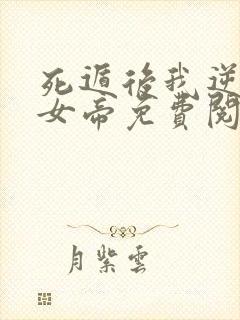 死遁後我逆
女帝免費閱
月紫雲